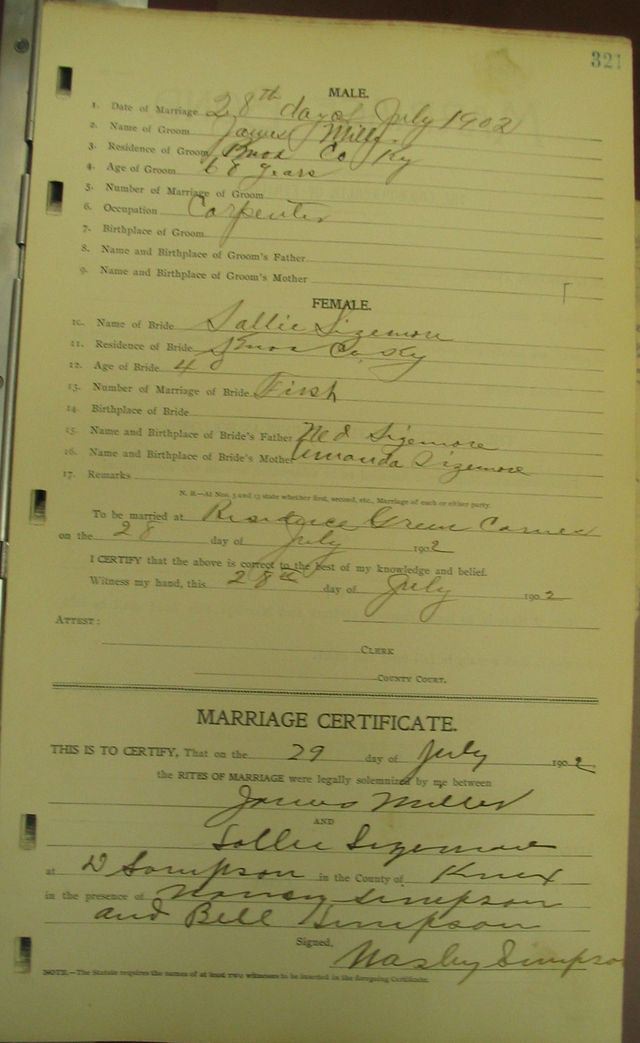 321
MALE.
1. Date of Marriage 28th day of July 1902
2. Name of Groom James Mills
3. Residence of Groom Knox Co Ky
4. Age of Groom 68 years
5. Number of Marriage of Groom
6. Occupation Carpenter
7. Birthplace of Groom
8. Name and Birthplace of Groom's Father
9. Name and Birthplace of Groom's Mother
FEMALE.
10. Name of Bride Sallie Sizemore
11. Residence of Bride Knox Co, Ky
12. Age of Bride 40
13. Number of Marriage of Bride First
14. Birthplace of Bride
15. Name and Birthplace of Bride's Father Ned Sizemore
16. Name and Birthplace of Bride's Mother Amanda Sizemore
17. Remarks
N. B.—At Nos. 5 and 13 state whether first, second, etc., Marriage of each or either party.
To be married at Residence Green
on the 28 day of July 1902
I CERTIFY that the above is correct to the best of my knowledge and belief.
Witness my hand, this 28th day of July 1902
ATTEST:
CLERK
COUNTY COURT.
MARRIAGE CERTIFICATE.
THIS IS TO CERTIFY, That on the 29 day of July 1902
the RITES OF MARRIAGE were legally solemnized by me between
James Miller
AND
Sallie Sizemore
at D Simpson in the County of Knox
in the presence of Nancy Simpson
and Bell Simpson
Signed, Nasby Simpson
NOTE.—The Statute requires the names of at least two witnesses to be inserted in the foregoing Certificate.